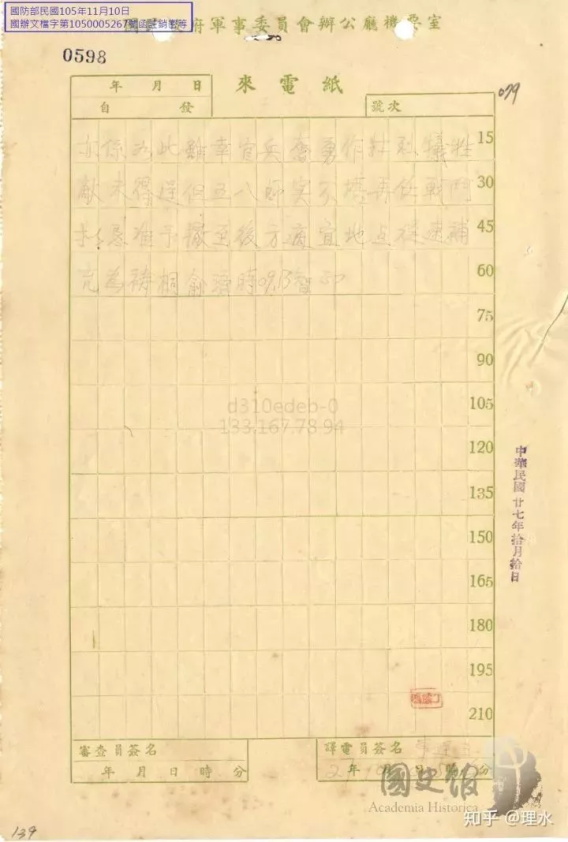 國防部民國105年11月10日
國辦文檔字第1050005267號函註銷機密等
府軍事委員會辦公廳機要室
0598
079
來電紙
年 月 日
自 發
號次
此雖幸官兵奮勇作壯烈犧牲 15
敵未得逞但五八師實不堪再任戰鬥 30
懇准予撤至後方適宜地点從速補 45
充為禱 俞濟時 60
75
90
105
d310edeb-0
133.167.78.94
120
135
150
165
180
195
210
中華民國廿七年拾月拾日
審查員簽名
年 月 日 時 分
譯電員簽名
年 月 日 時 分
國史館
Academia Historica
知乎 @理水
139